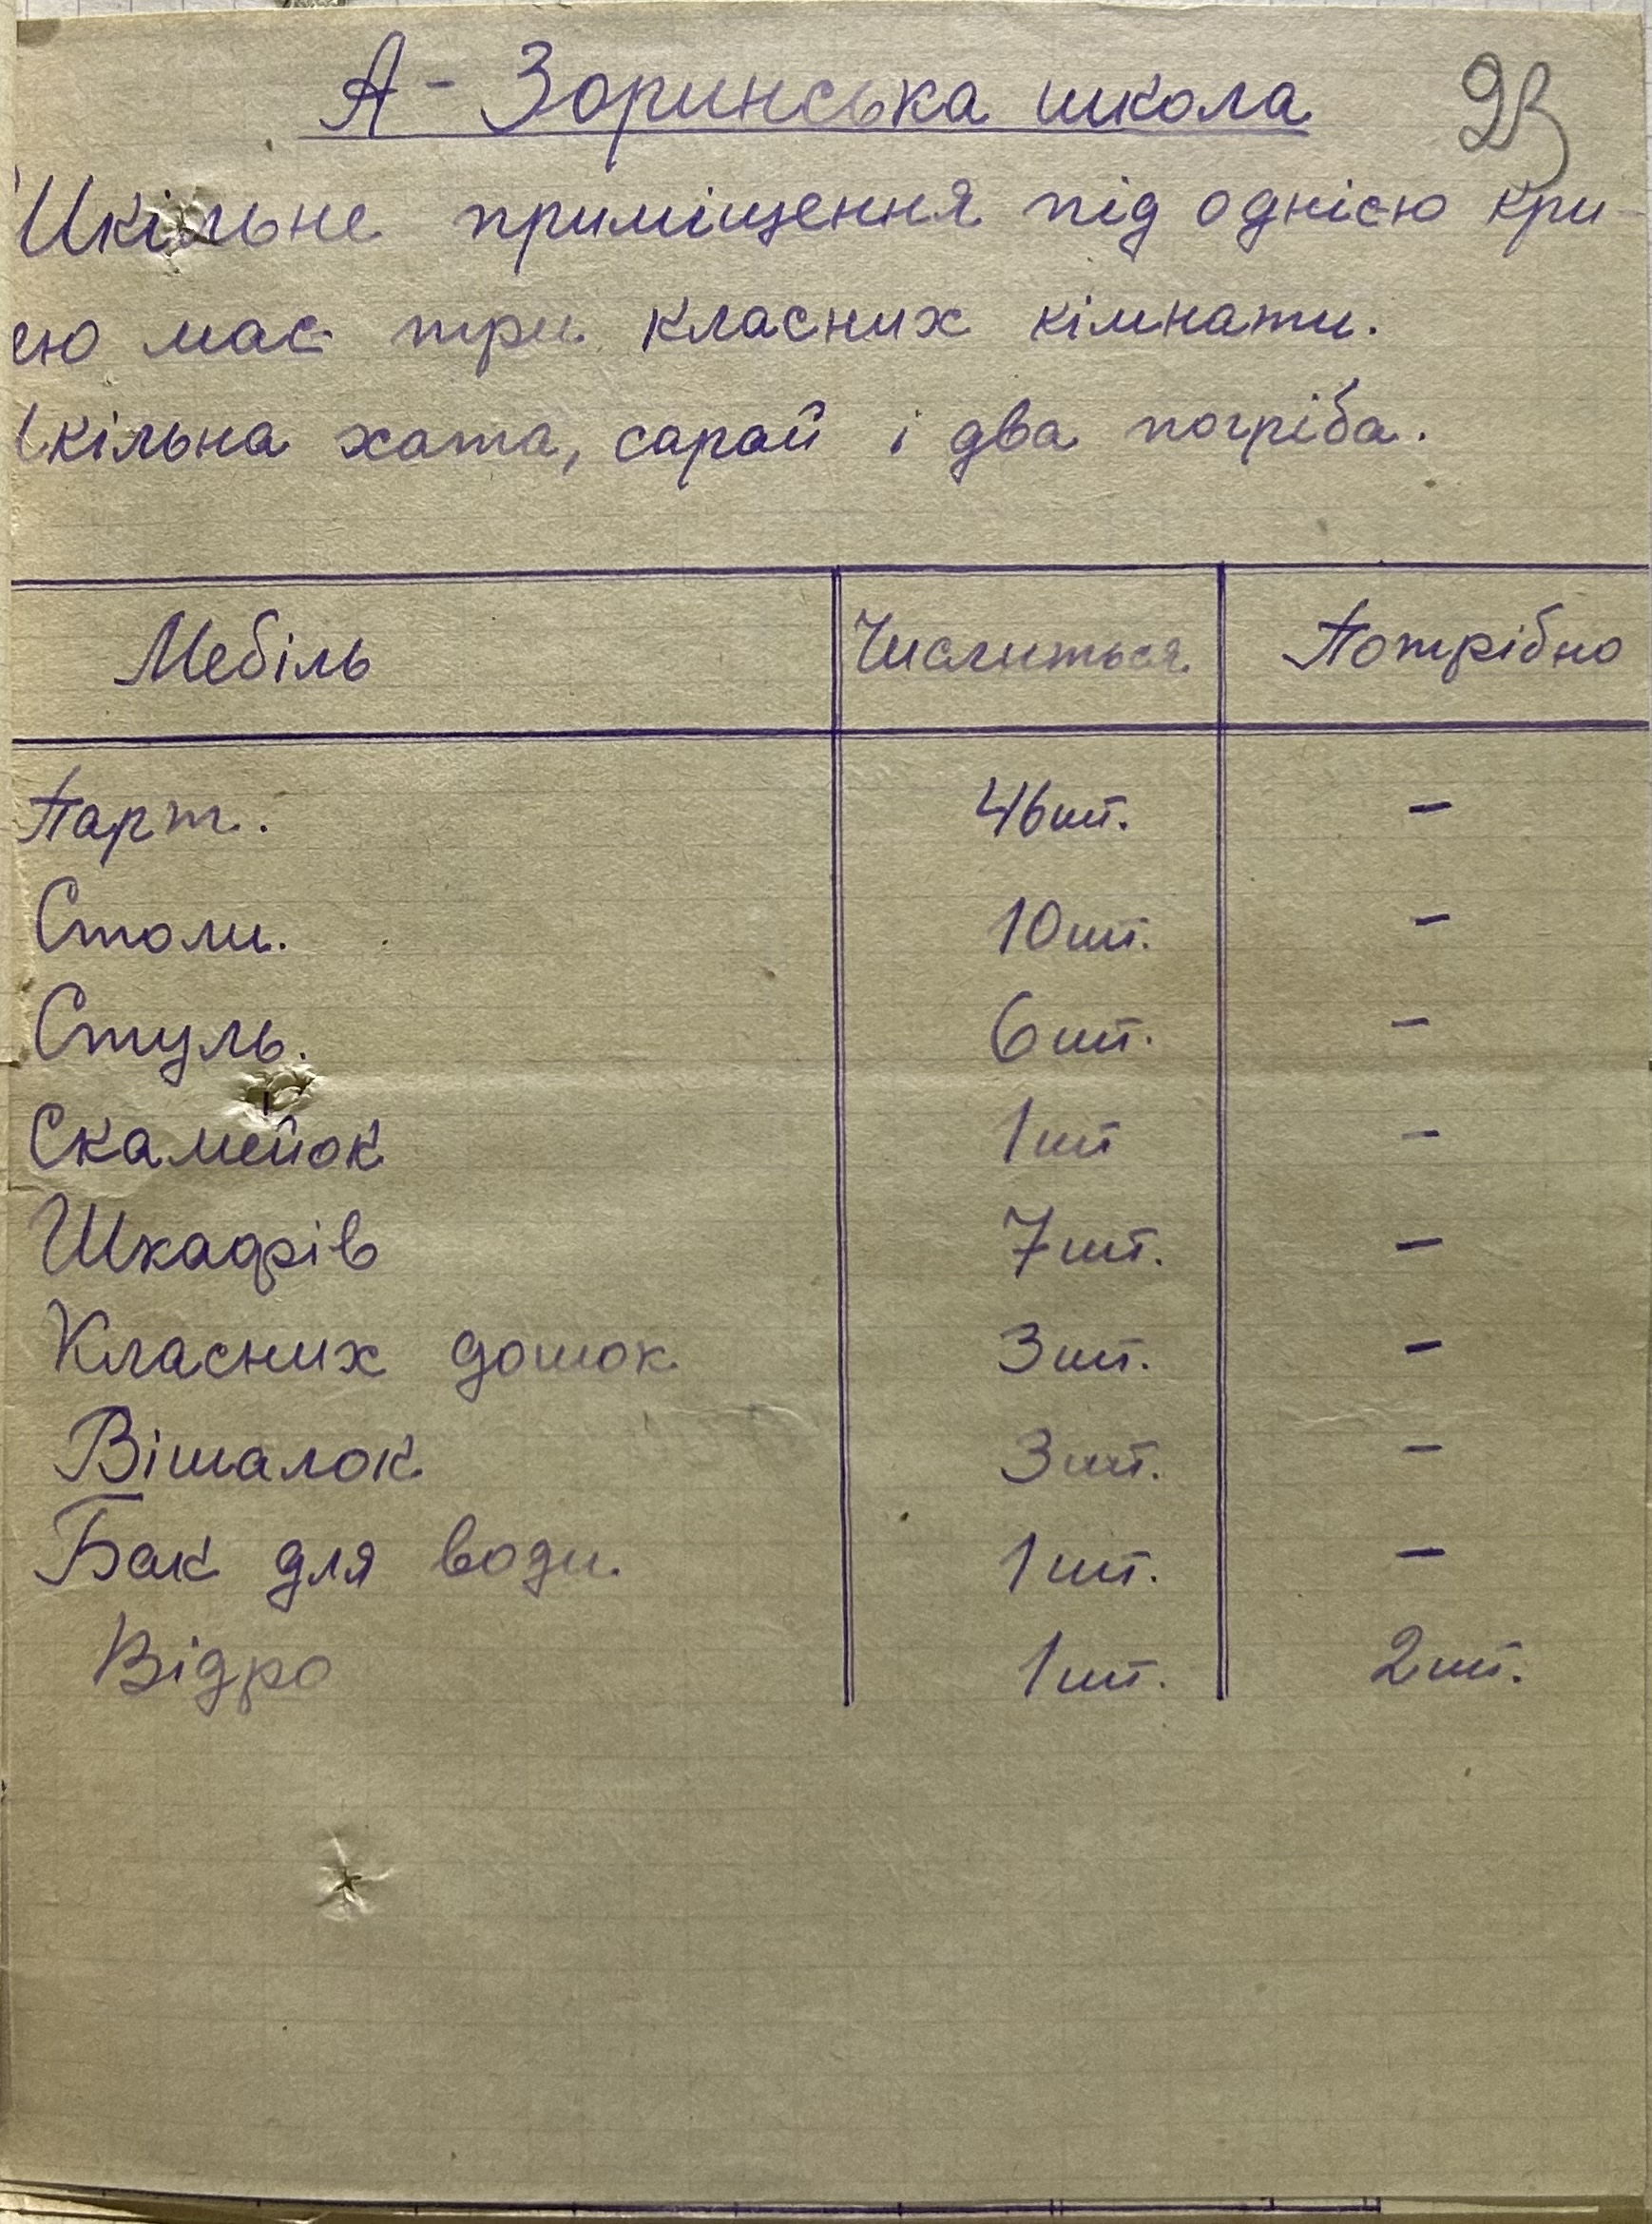 А - Зоринська школа
Шкільне приміщення під однією кри-
ею має три класних кімнати.
кільна хата, сарай і два погріба.
Мебіль Числиться Потрібно
Парт. 46 шт. -
Столи. 10 шт. -
Стуль. 6 шт. -
Скамейок 1 шт -
Шкафів 7 шт. -
Класних дошок 3 шт. -
Вішалок 3 шт. -
Бак для води. 1 шт. -
Відро 1 шт. 2 шт.